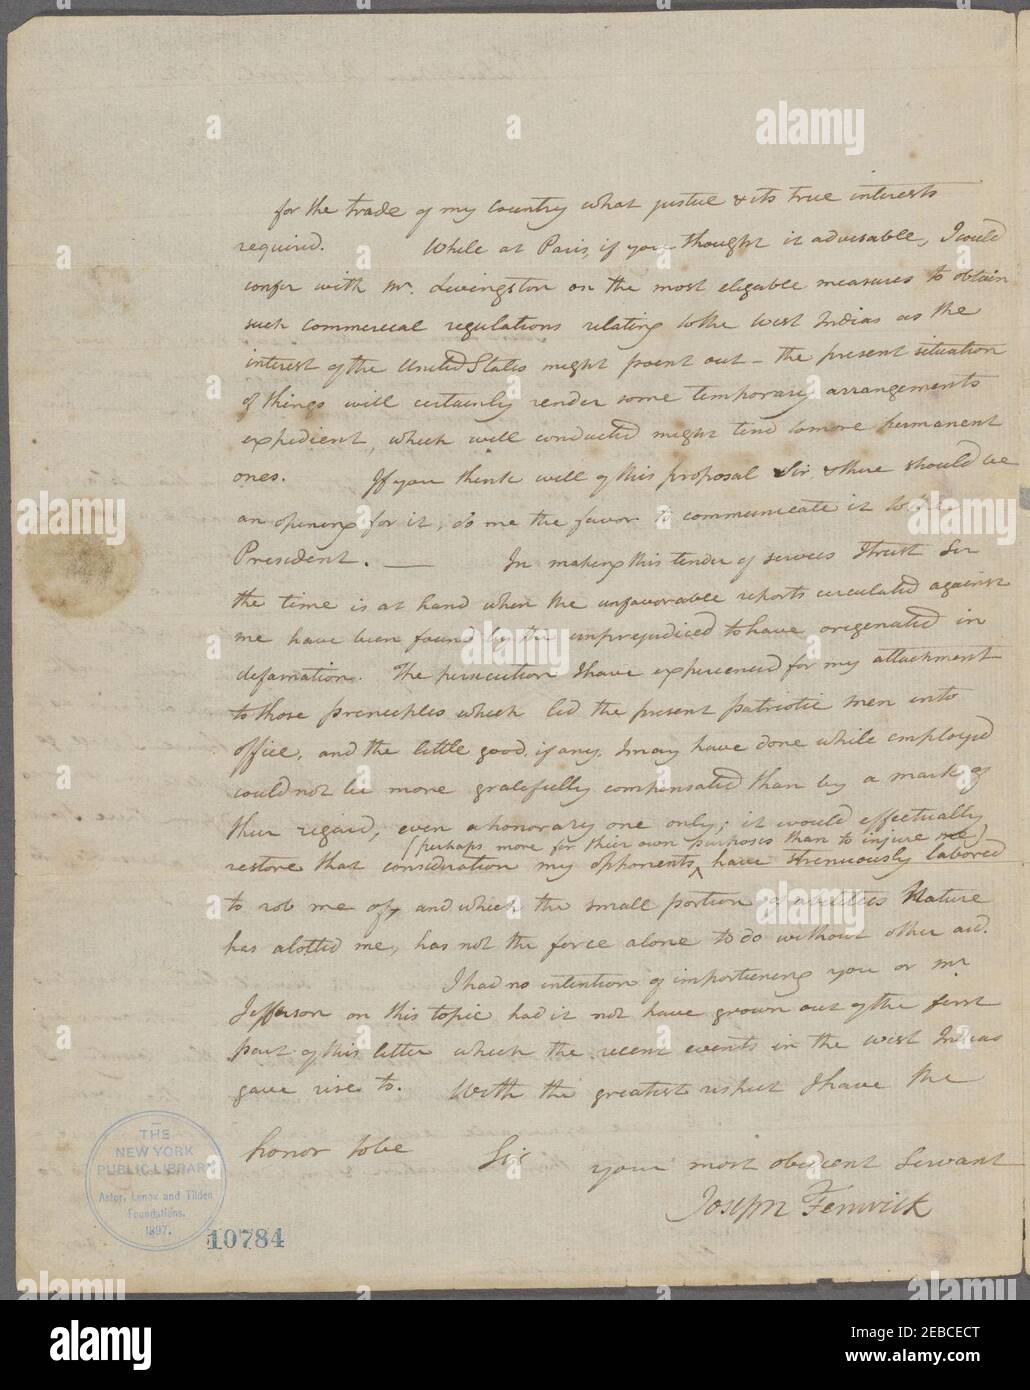 for the trade of my Country what justice & its true interests
required. While at Paris, if you thought it adviseable, I could
confer with Mr. Livingston on the most eligable measures to obtain
such commercial regulations relating to the West Indias as the
interest of the United States might point out - the present situation
of things will certainly render some temporary arrangements
expedient, which well conducted might tend to more permanent
ones. If you think well of this proposal Sir, & there should be
an opening for it, do me the favor to communicate it to the
President. — In making this tender of services I trust Sir
the time is at hand when the unfavorable reports circulated against
me have been found by the unprejudiced to have origenated in
defamation. The persecution I have experienced for my attachment
to those principles which led the present patriotic men into
office, and the little good, if any, I may have done while employed
could not be more gratefully compensated than by a mark of
their regard, even a honorary one only; it would effectually
(perhaps more for their own purposes than to injure me)
restore that consideration my opponents ^ have strenuously labored
to rob me of, and which the small portion of abilities Nature
has alotted me, has not the force alone to do without other aid.
I had no intention of importuning you or Mr
Jefferson on this topic had it not have grown out of the first
part of this letter which the recent events in the West Indias
gave rise to. With the greatest respect I have the
honor to be Sir your most obedient Servant
Joseph Fenwick
THE
NEW YORK
PUBLIC LIBRARY
Astor, Lenox and Tilden
Foundations.
1897.
10784
alamy
a
alamy
Image ID: 2EBCECT
www.alamy.com